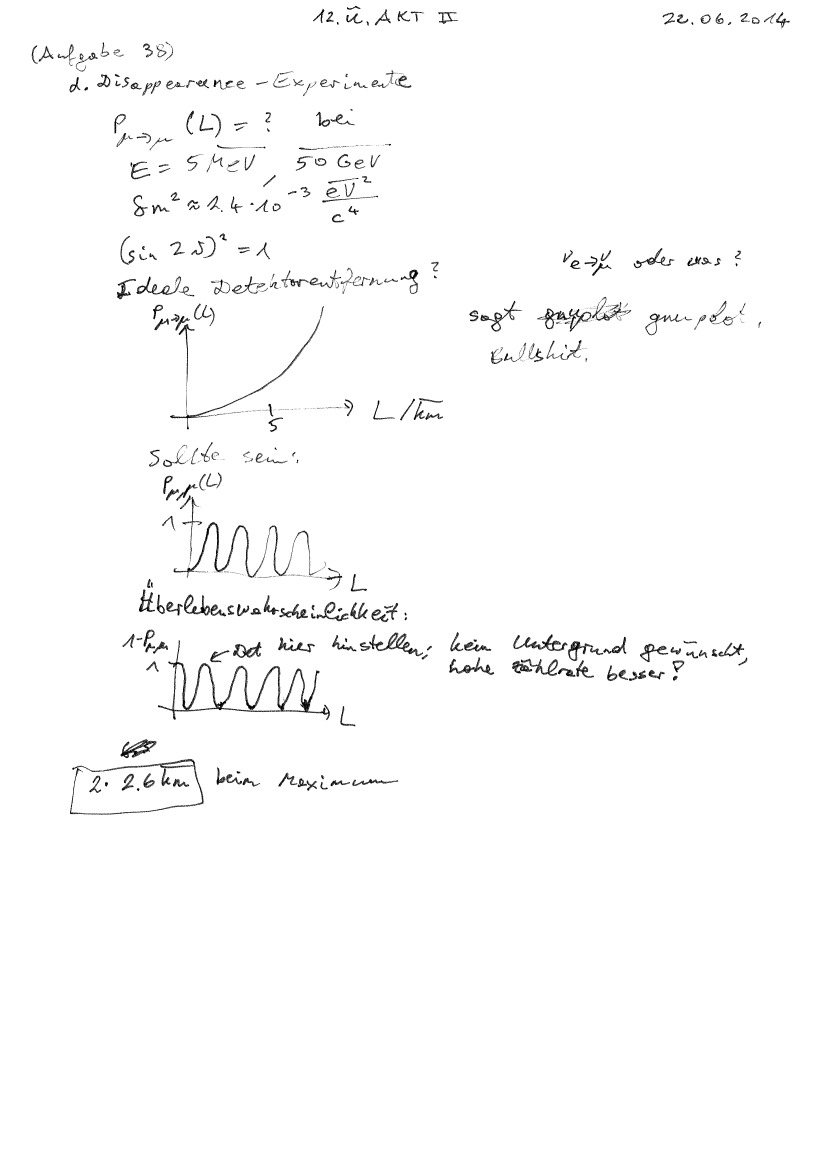 12. Ü, AKT II 22.06.2014
(Aufgabe 38)
d. Disappearance-Experimente
P_μ→μ (L) = ? bei
E = 5 MeV, 50 GeV
δm² ≈ 2.4 · 10⁻³ eV²/c⁴
(sin 2ϑ)² = 1
νe→νμ oder was?
Ideale Detektorentfernung?
P_μ→μ(L)
sagt gnuplot.
Bullshit.
5
L/km
Sollte sein:
P_μμ(L)
1
L
Überlebenswahrscheinlichkeit:
1-P_μμ
1
← Det hier hinstellen; kein Untergrund gewünscht,
hohe Zählrate besser?
L
2 · 2.6 km beim Maximum